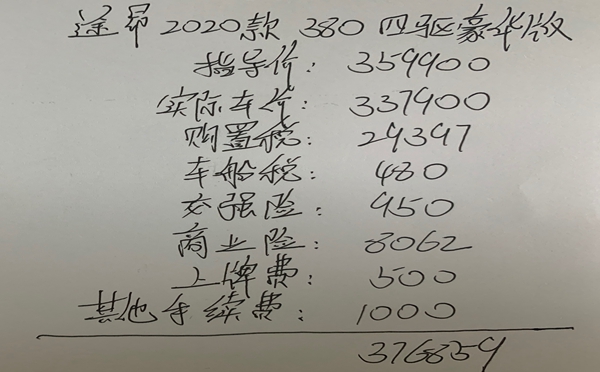 途昂 2020款 380 四驱豪华版
指导价: 359900
实际车价: 337900
购置税: 29397
车船税: 480
交强险: 950
商业险: 8062
上牌费: 500
其他手续费: 1000
376859